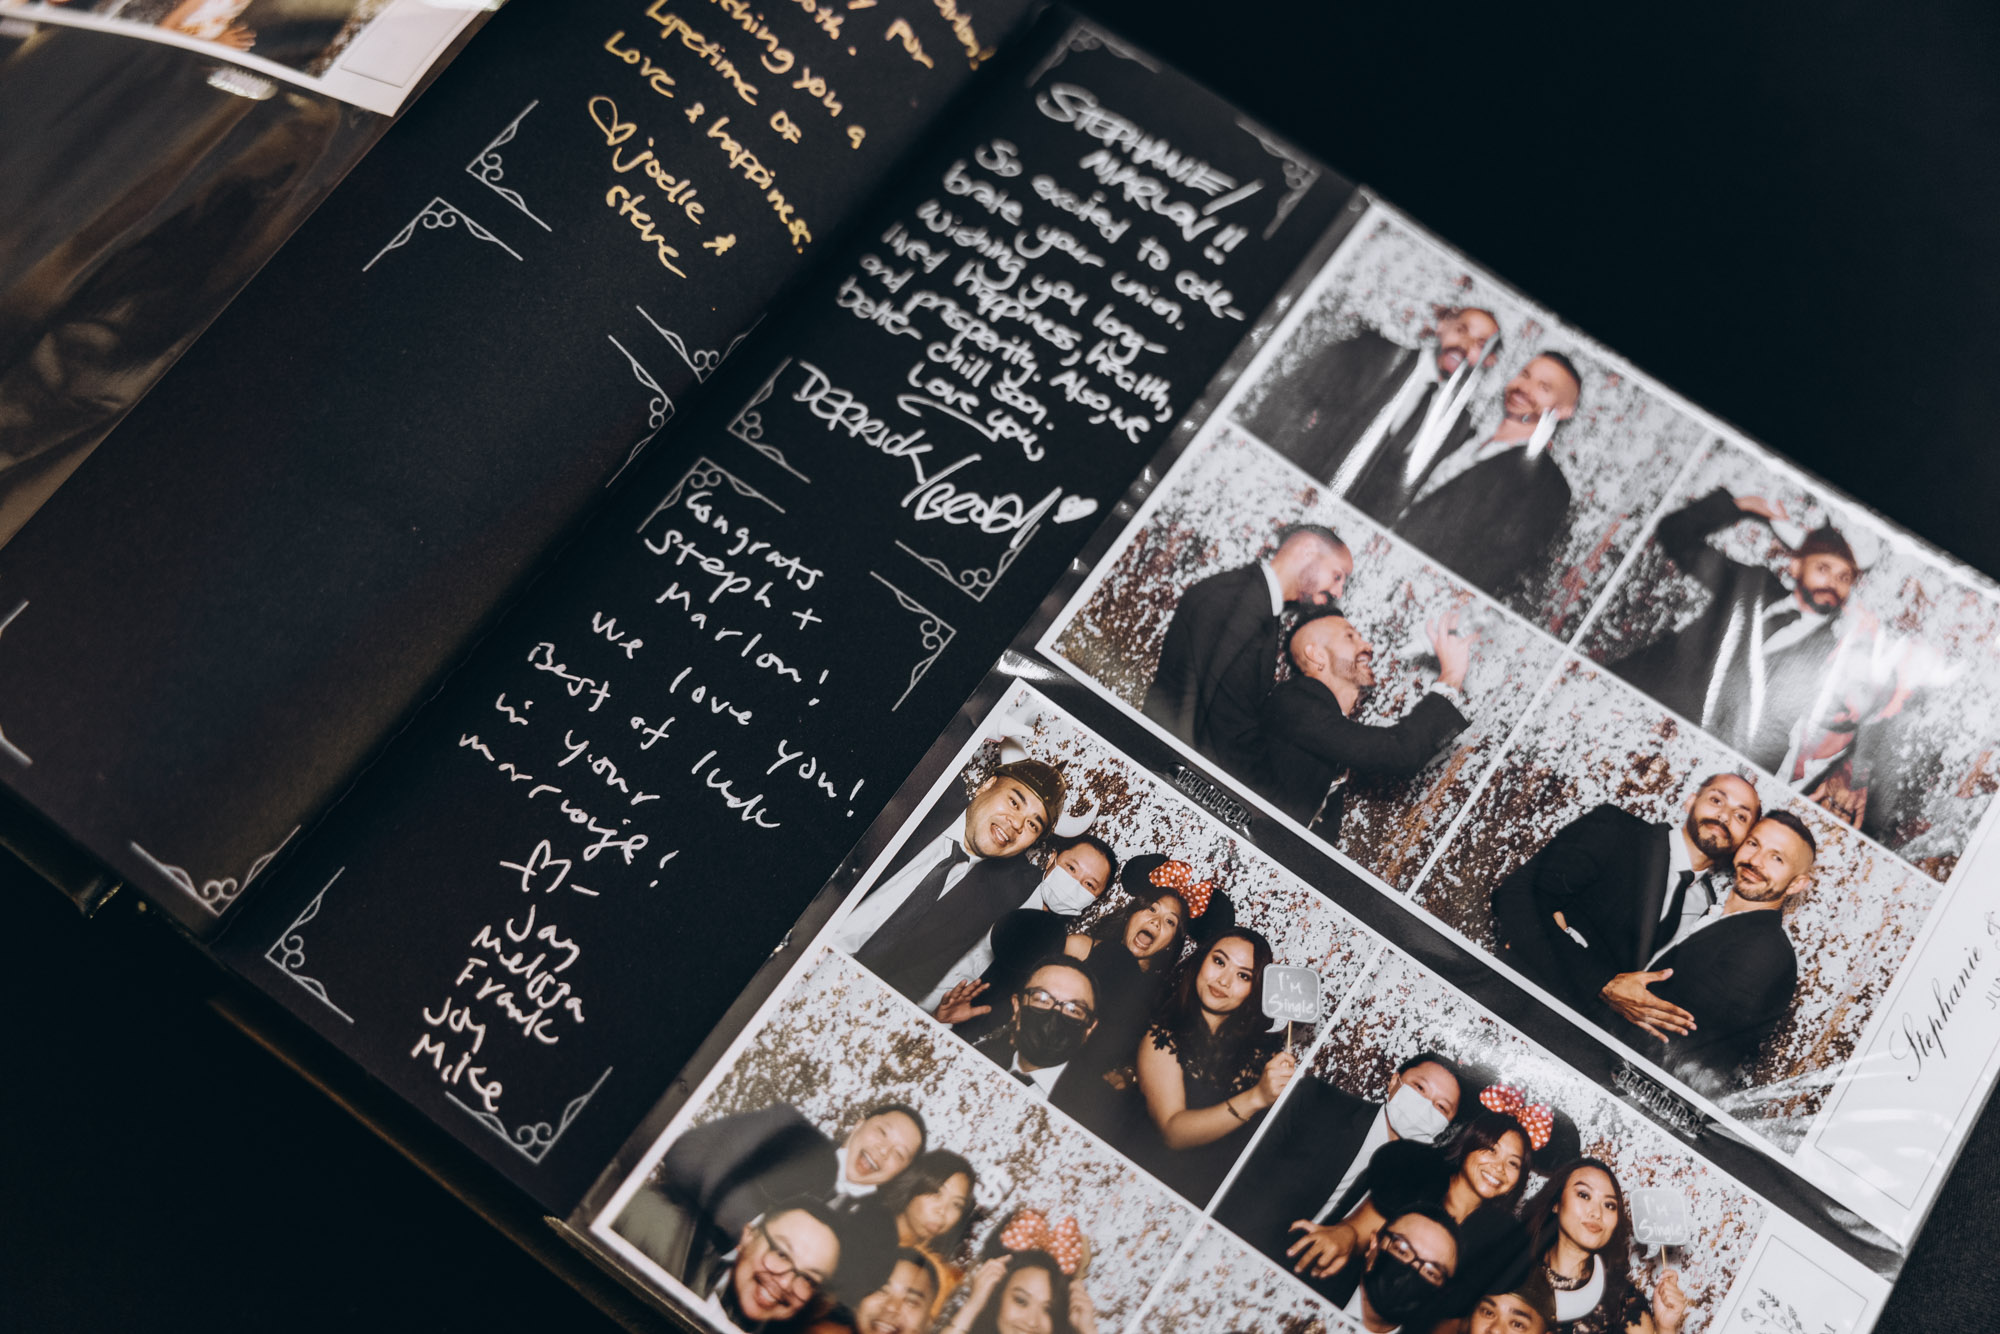 for
ooth.
ching you a
lifetime of
love & happiness.
♡ joelle &
steve
STEPHANIE/
MARLON!!
So excited to cele-
brate your union.
Wishing you long-
lived happiness, health,
and prosperity. Also, we
better chill soon.
Love you,
DERRICK/
Congrats
Steph +
Marlon!
We love you!
Best of luck
in your
marraige!
Jay
Melissa
Frank
Joy
Mike
I'M
Single
I'M
Single
Stephanie